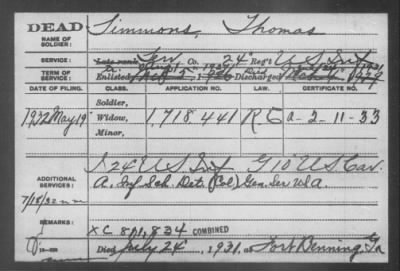 DEAD
NAME OF SOLDIER: Simmons, Thomas
SERVICE: Late rank Co. 24" Reg't U S Inf
TERM OF SERVICE: Enlisted Discharged
DATE OF FILING. CLASS. APPLICATION NO. LAW. CERTIFICATE NO.
Soldier,
1932 May 19 Widow, 1,718,441 a-2-11-33
Minor,
ADDITIONAL SERVICES: I 24" U S Inf G 10" U S Cav.
A, Inf Sch. Det. (Col) Gen. Ser
7/18/32
REMARKS: XC 811,834 COMBINED
Died July 24, 1931, at Fort Benning Ga